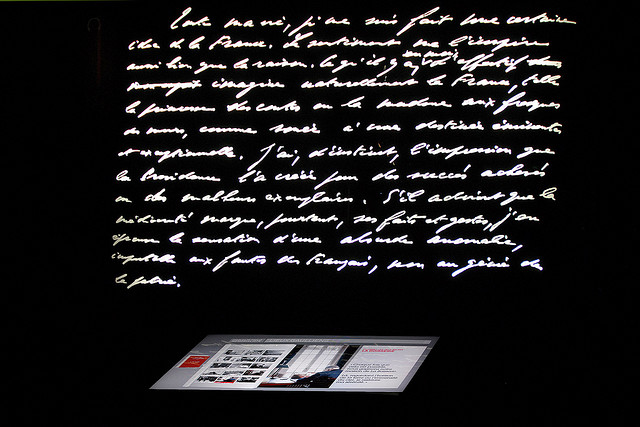 Toute ma vie, je me suis fait une certaine
idée de la France. Le sentiment me l'inspire
aussi bien que la raison. Ce qu'il y a, en moi, d'affectif
imagine naturellement la France, telle
la princesse des contes ou la madone aux fresques
des murs, comme vouée à une destinée éminente
et exceptionnelle. J'ai, d'instinct, l'impression que
la Providence l'a créée pour des succès achevés
ou des malheurs exemplaires. S'il advient que la
médiocrité marque, pourtant, ses faits et gestes, j'en
éprouve la sensation d'une absurde anomalie,
imputable aux fautes des Français, non au génie de
la patrie.